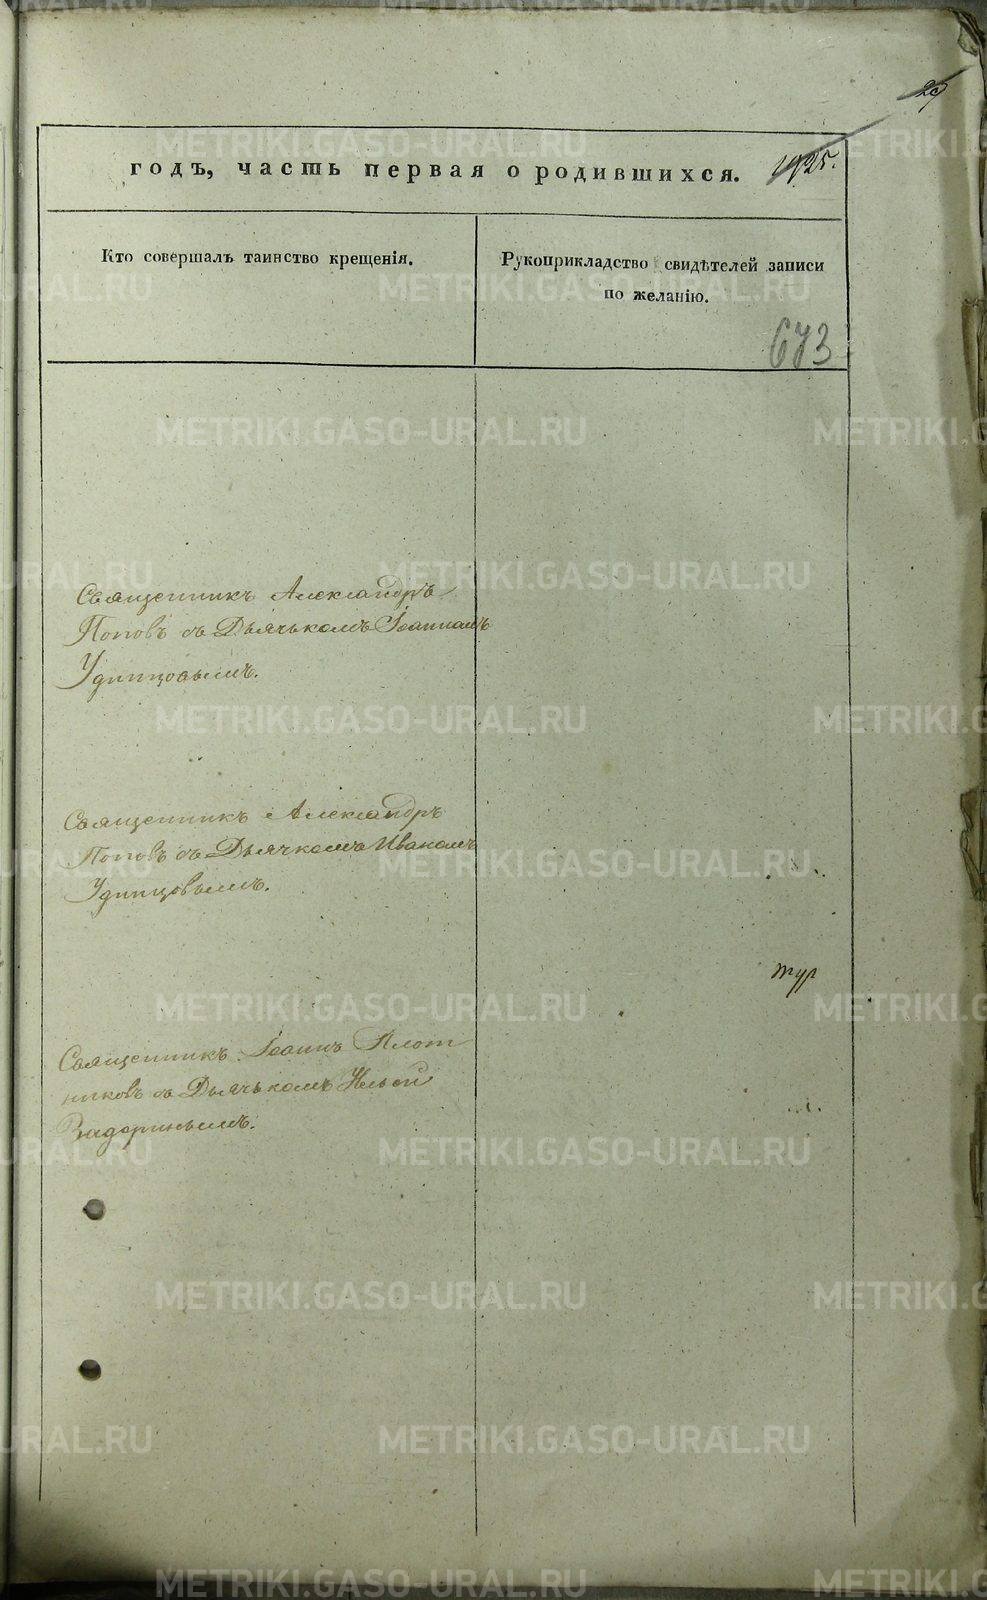 29
годъ, часть первая о родившихся.
Кто совершалъ таинство крещенія.
Рукоприкладство свидѣтелей записи
по желанію.
673
Священникъ Александръ
Поповъ съ Дьячькомъ Іоанномъ
Удинцовымъ.
Священникъ Александръ
Поповъ съ Дьячкомъ Иваномъ
Удинцовымъ.
Священникъ Іоаннъ Плот
никовъ съ Дьячькомъ Ильей
METRIKI.GASO-URAL.RU